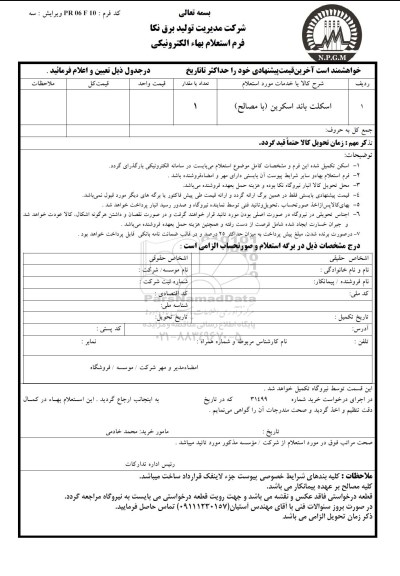 بسمه تعالی
کد فرم : PR 06 F 10 ویرایش : سه
شرکت مدیریت تولید برق نکا
فرم استعلام بهاء الکترونیکی
N.P.G.M
خواهشمند است آخرین قیمت پیشنهادی خود را حداکثر تاتاریخ درجدول ذیل تعیین و اعلام فرمائید .
ردیف شرح کالا یا خدمات مورد استعلام تعداد یا مقدار قیمت واحد قیمت کل ملاحظات
۱ اسکلت باند اسکرین (با مصالح) ۱
جمع کل به حروف:
تذکر مهم : زمان تحویل کالا حتماً قید گردد.
توضیحات:
۱- اسکن تکمیل شده این فرم و مشخصات کامل موضوع استعلام می‌بایست در سامانه الکترونیکی بارگذاری گردد.
۲- فرم استعلام بهاء سایر شرایط پیوست آن بایستی دارای مهر و امضاء فروشنده باشد .
۳- محل تحویل کالا انبار نیروگاه نکا بوده و هزینه حمل بعهده فروشنده می‌باشد.
۴- قیمت پیشنهادی بایستی فقط در همین برگ ارائه گردد و ارائه قیمت طی پیش فاکتور یا برگه های دیگر مورد قبول نمی‌باشد.
۵- بهای کالا پس از اخذ صورتحساب ،تحویل و تائید فنی توسط نماینده نیروگاه و صدور رسید انبار پرداخت خواهد شد .
۶- اجناس تحویلی در نیروگاه در صورت اصلی بودن مورد تائید قرار خواهند گرفت و در صورت نقصان و داشتن هرگونه اشکال، کالا عودت خواهد شد
و جبران خسارت ایجاد شده شامل فرصت از دست رفته و همچنین هزینه حمل بعهده فروشنده می‌باشد .
۷- درصورت برنده شدن، مبلغ پیش پرداخت به میزان حداکثر درصد و در قالب ضمانت نامه بانکی قابل پرداخت خواهد بود .
درج مشخصات ذیل در برگه استعلام و صورتحساب الزامی است :
اشخاص حقیقی اشخاص حقوقی
نام و نام خانوادگی : نام موسسه / شرکت :
نام فروشنده / پیمانکار: شماره ثبت شرکت :
کد ملی: کد اقتصادی :
شناسه ملی:
تاریخ تکمیل : تاریخ تحویل:
آدرس: کد پستی :
تلفن : نام کارشناس مربوطه و شماره همراه : نمابر :
امضاءمدیر و مهر شرکت / موسسه / فروشگاه
ParsNamadData
۰۲۱-۸۸۳۴۹۶۷۰-۵
این قسمت توسط نیروگاه تکمیل خواهد شد .
در اجرای درخواست خرید شماره ۳۱۴۹۹ که در تاریخ به اینجانب ارجاع گردید . این استعلام بهاء در کمال
دقت تنظیم و اخذ گردید و صحت مندرجات آن را گواهی می‌نمایم .
تاریخ : مامور خرید: محمد خادمی
صحت مراتب فوق در مورد استعلام از شرکت / مؤسسه مذکور مورد تائید میباشد .
رئیس اداره تدارکات
ملاحظات : کلیه بندهای شرایط خصوصی پیوست جزء لاینفک قرارداد ساخت میباشد.
کلیه مصالح بر عهده پیمانکار می باشد.
قطعه درخواستی فاقد عکس و نقشه می باشد و جهت رویت قطعه درخواستی می بایست به نیروگاه مراجعه گردد.
در صورت بروز سئوالات فنی با آقای مهندس استیان(۰۹۱۱۱۲۳۰۱۵۷) تماس حاصل فرمایید.
ذکر زمان تحویل الزامی می باشد